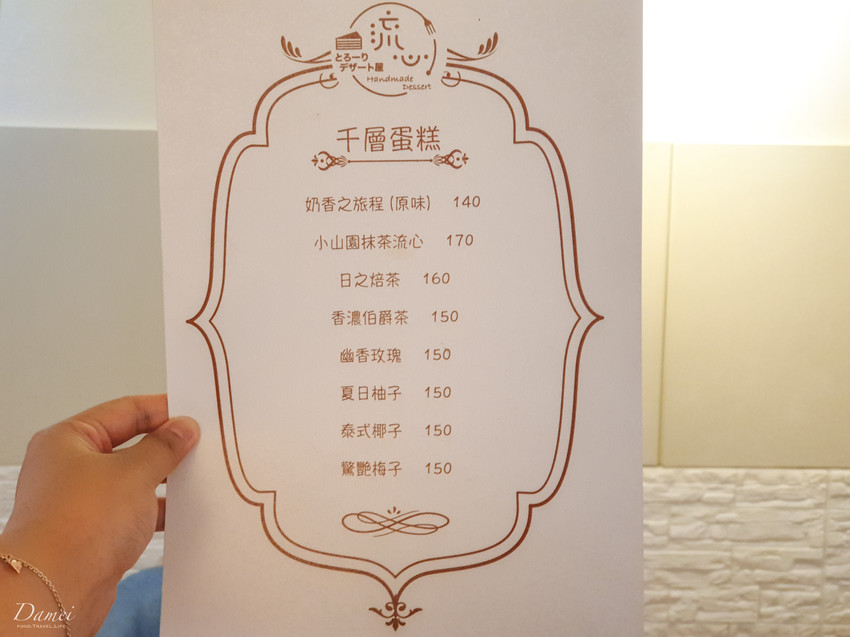 流心
とろーり
デザート屋
Handmade
Dessert
千層蛋糕
奶香之旅程 (原味) 140
小山園抹茶流心 170
日之焙茶 160
香濃伯爵茶 150
幽香玫瑰 150
夏日柚子 150
泰式椰子 150
驚艷梅子 150
Damei
FOOD.TRAVEL.LIFE